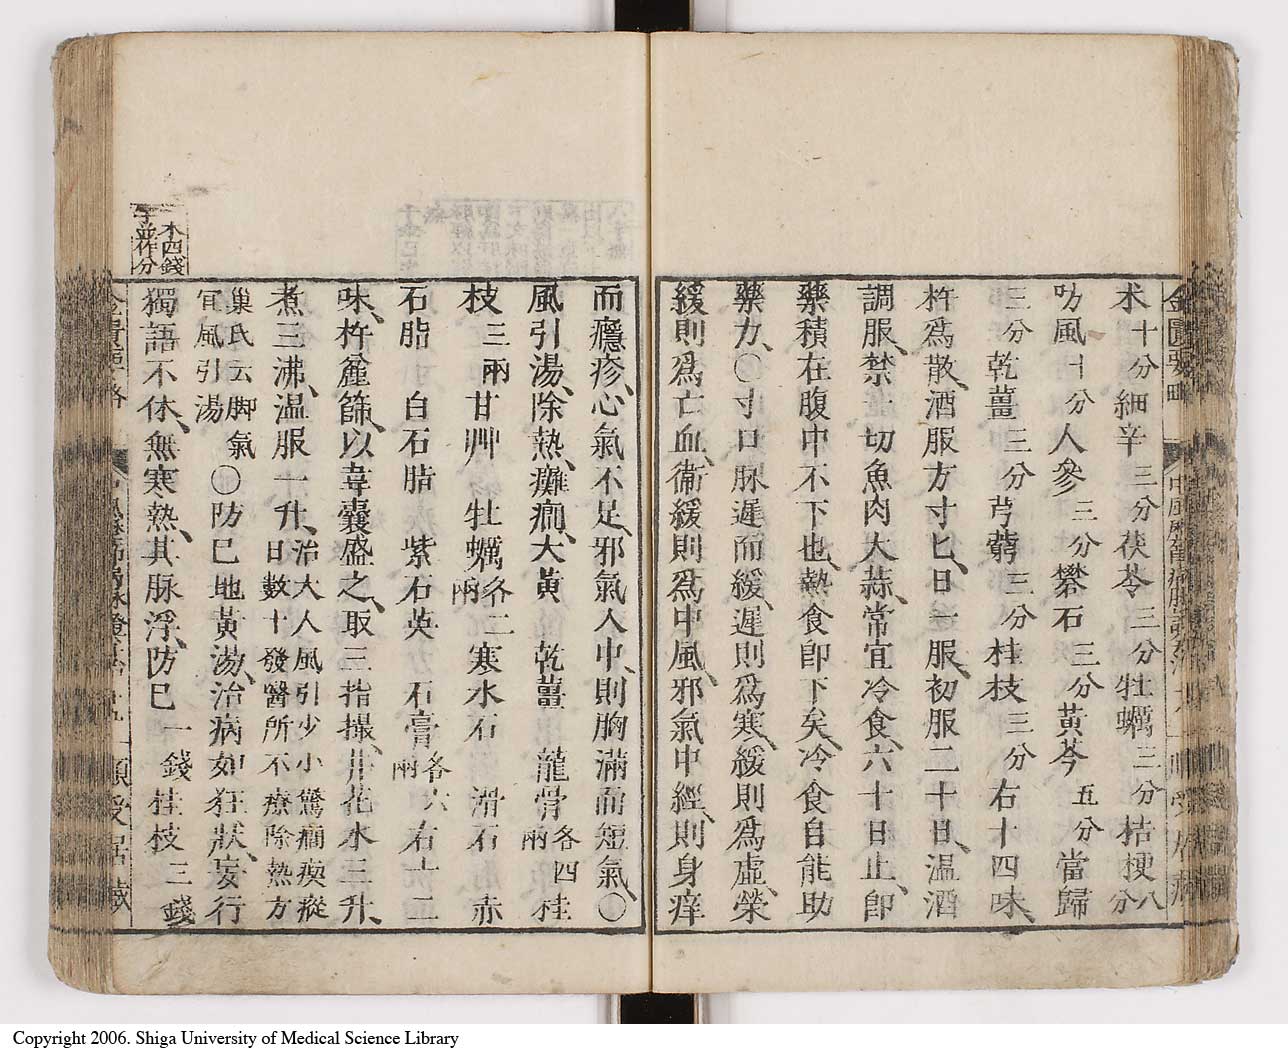 朮十分細辛三分茯苓三分牡蠣三分桔梗八分
防風十分人參三分礬石三分黃芩五分當歸
三分乾薑三分芎藭三分桂枝三分右十四味、
杵爲散、酒服方寸匕、日一服、初服二十日、温酒
調服、禁一切魚肉大蒜、常宜冷食、六十日止、卽
藥積在腹中不下也、熱食卽下矣、冷食自能助
藥力、○寸口脉遲而緩、遲則爲寒、緩則爲虛、榮
緩則爲亡血、衞緩則爲中風、邪氣中經、則身痒
而癮疹、心氣不足、邪氣入中、則胸滿而短氣、○
風引湯、除熱、癱癇、大黃 乾薑 龍骨各四兩桂
枝三兩甘艸 牡蠣各二兩寒水石 滑石 赤
石脂 白石脂 紫石英 石膏各六兩右十二
味、杵麄篩、以韋囊盛之、取三指撮、井花水三升、
煮三沸、温服一升、治大人風引少小驚癇瘈瘲日數十發醫所不療除熱方
巢氏云脚氣宜風引湯○防巳地黃湯、治病如狂狀、妄行
獨語不休、無寒熱、其脉浮、防巳一錢桂枝三錢
金匱要略
木四錢
子並作分